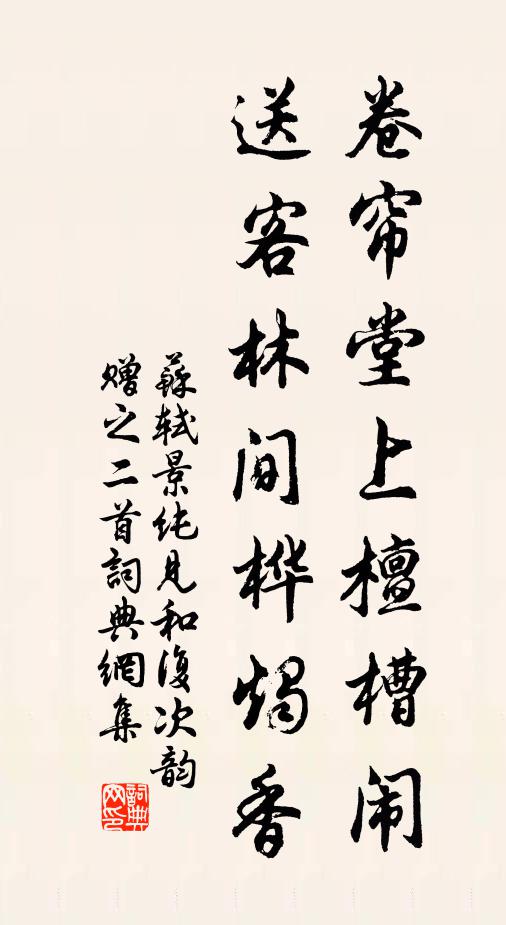 卷帘堂上檀槽闹
送客林间桦烛香
蘇轼景纯見和復次韵
赠之二首詞典網集
詞典
网印